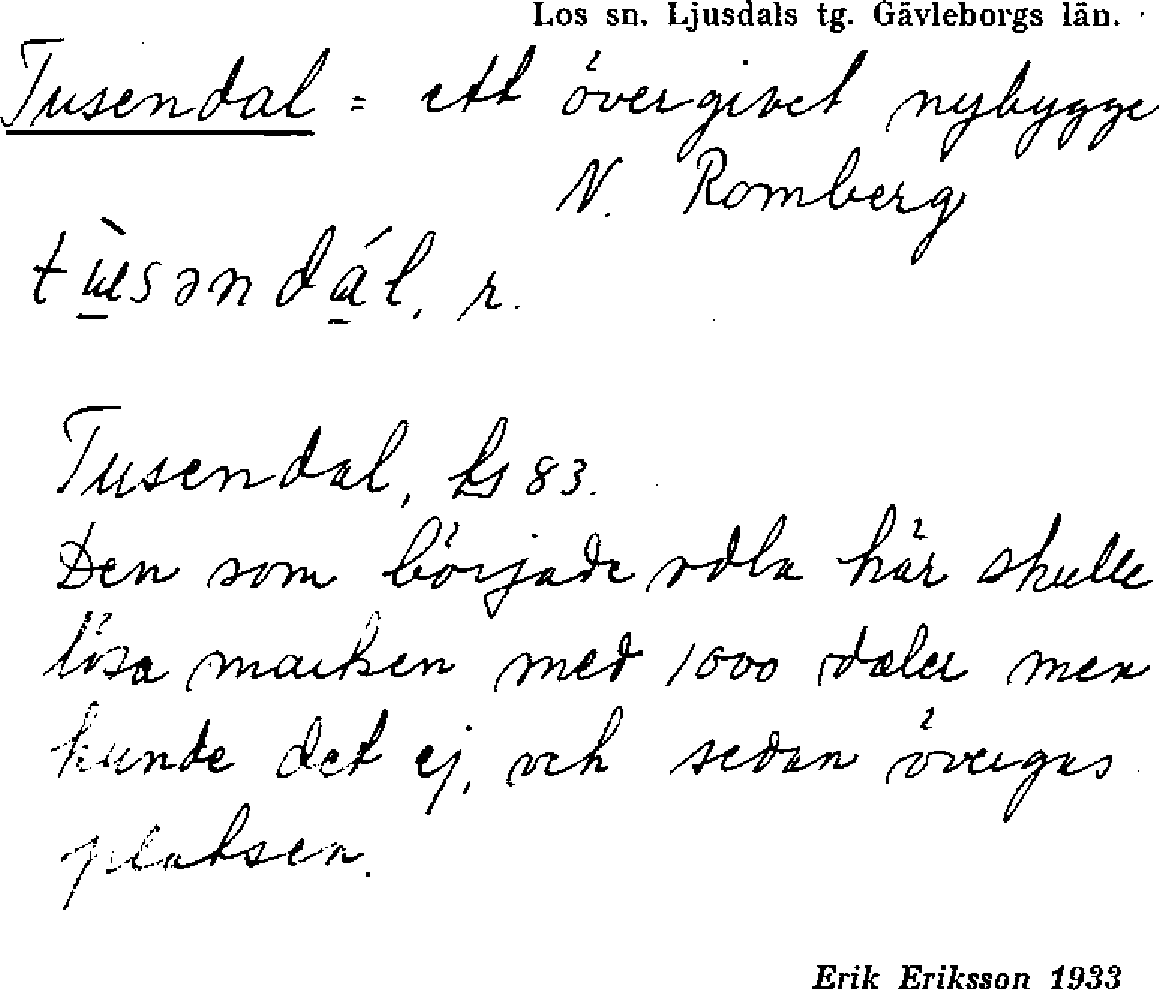 Los sn. Ljusdals tg. Gävleborgs län.
Tusendal = ett övergivet nybygge
N. Romberg
tùsəndál, r.
Tusendal, hs 83.
Den som började odla här skulle
lösa marken med 1000 daler men
kunde det ej, och sedan övergavs
platsen.
Erik Eriksson 1933